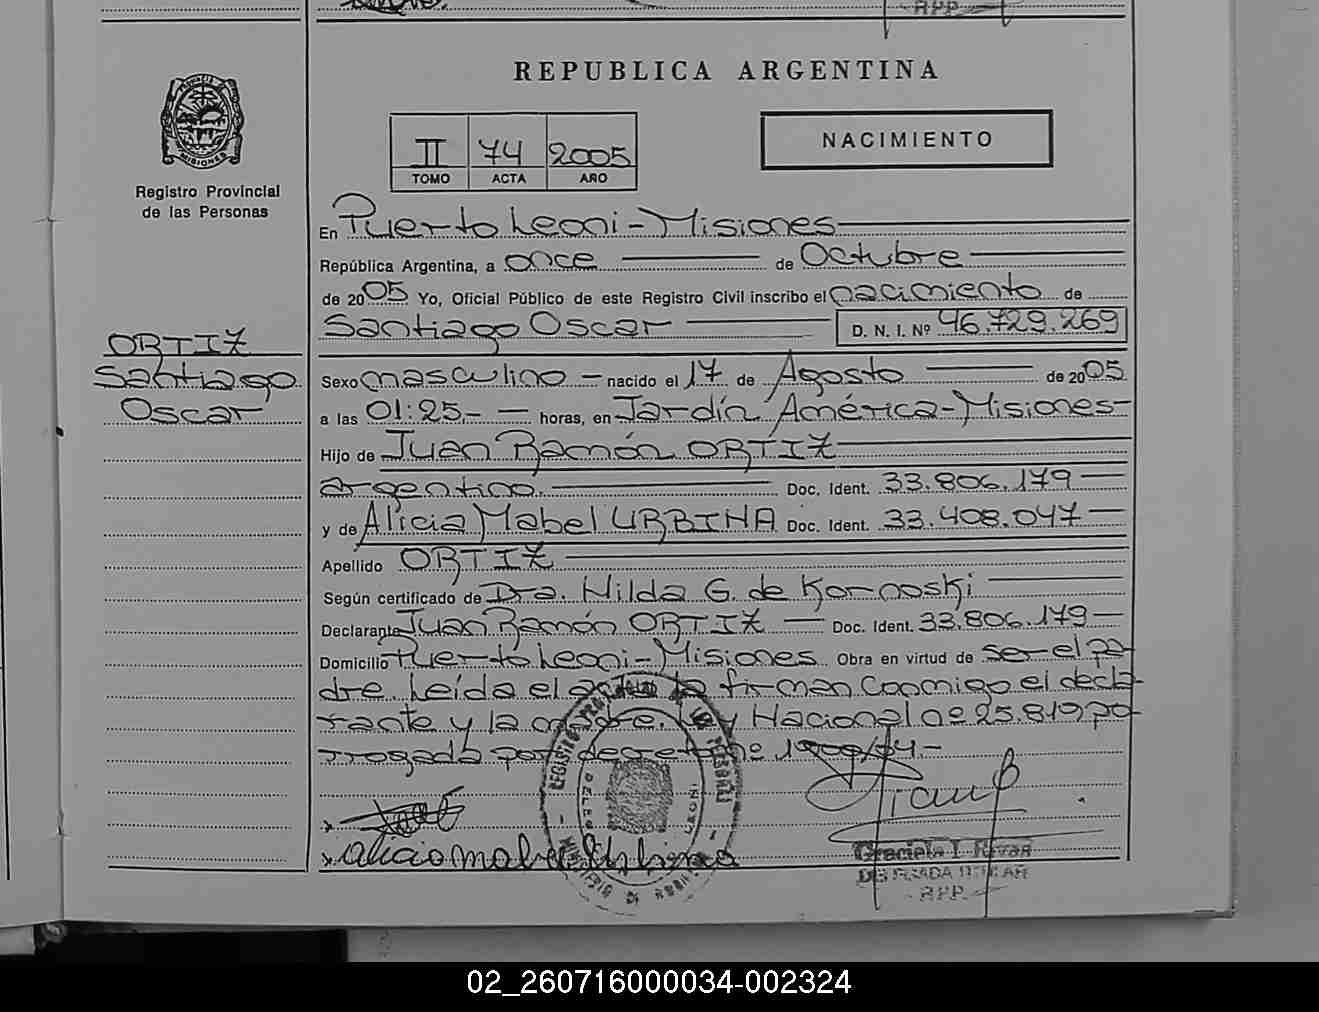 REPUBLICA ARGENTINA
PROVINCIA MISIONES
Registro Provincial
de las Personas
II 74 2005
TOMO ACTA AÑO
NACIMIENTO
En Puerto Leoni - Misiones
República Argentina, a once de Octubre
de 2005 Yo, Oficial Público de este Registro Civil inscribo el nacimiento de
Santiago Oscar D. N. I. Nº 46.729.269
ORTIZ
Santiago
Oscar
Sexo masculino - nacido el 17 de Agosto de 2005
a las 01:25.- horas, en Jardín América - Misiones -
Hijo de Juan Ramón ORTIZ
argentino. Doc. Ident. 33.806.179
y de Alicia Mabel URBINA Doc. Ident. 33.408.047
Apellido ORTIZ
Según certificado de Dra. Hilda G. de Kornoski
Declarante Juan Ramón ORTIZ Doc. Ident. 33.806.179
Domicilio Puerto Leoni - Misiones Obra en virtud de ser el pa-
dre. Leída el acta la firman conmigo el decla-
rante y la madre. Ley Nacional nº 25.819 po-
rrogada por decreto nº
x
x Alicia Mabel Urbina
REGISTRO PROVINCIAL DE LAS PERSONAS
Graciela I. Rivas
DELEGADA TITULAR
RPP
02_260716000034-002324